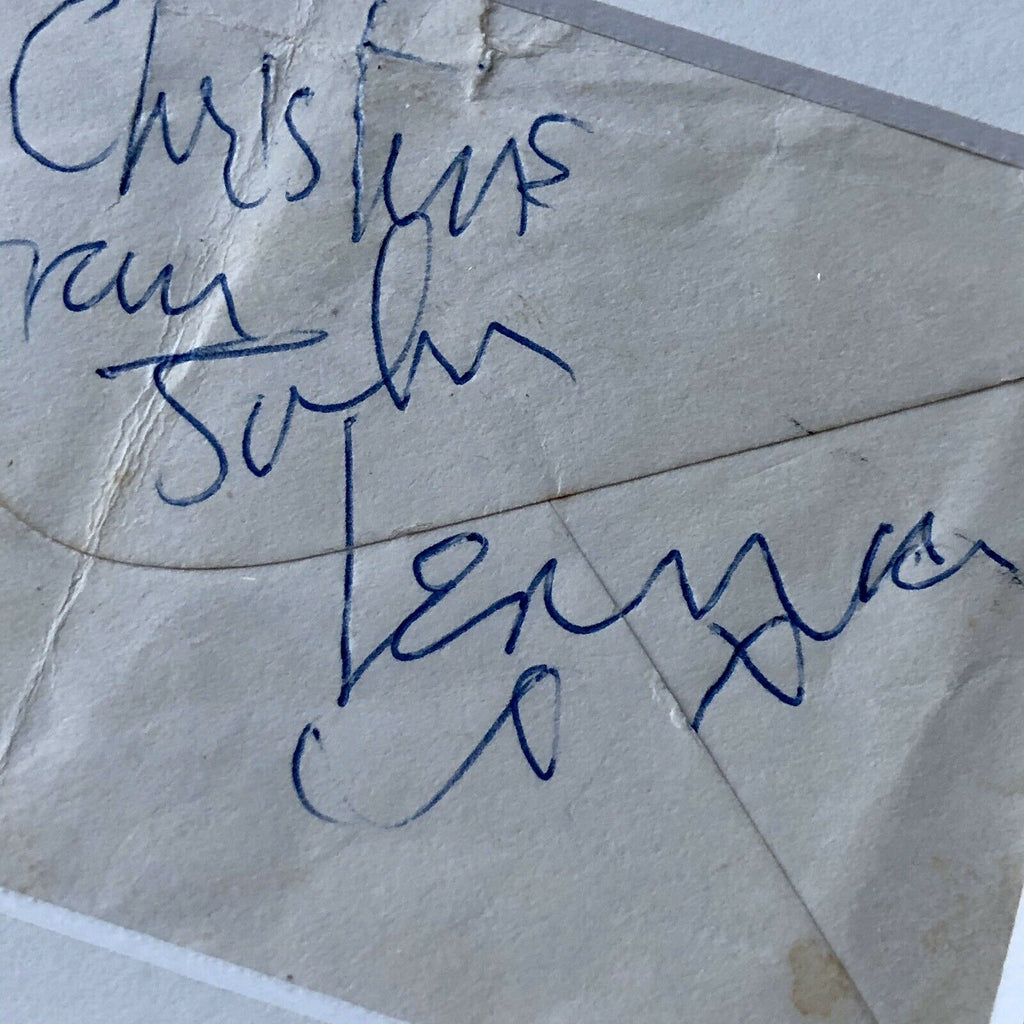 Christmas
from
John
Lennon
xx